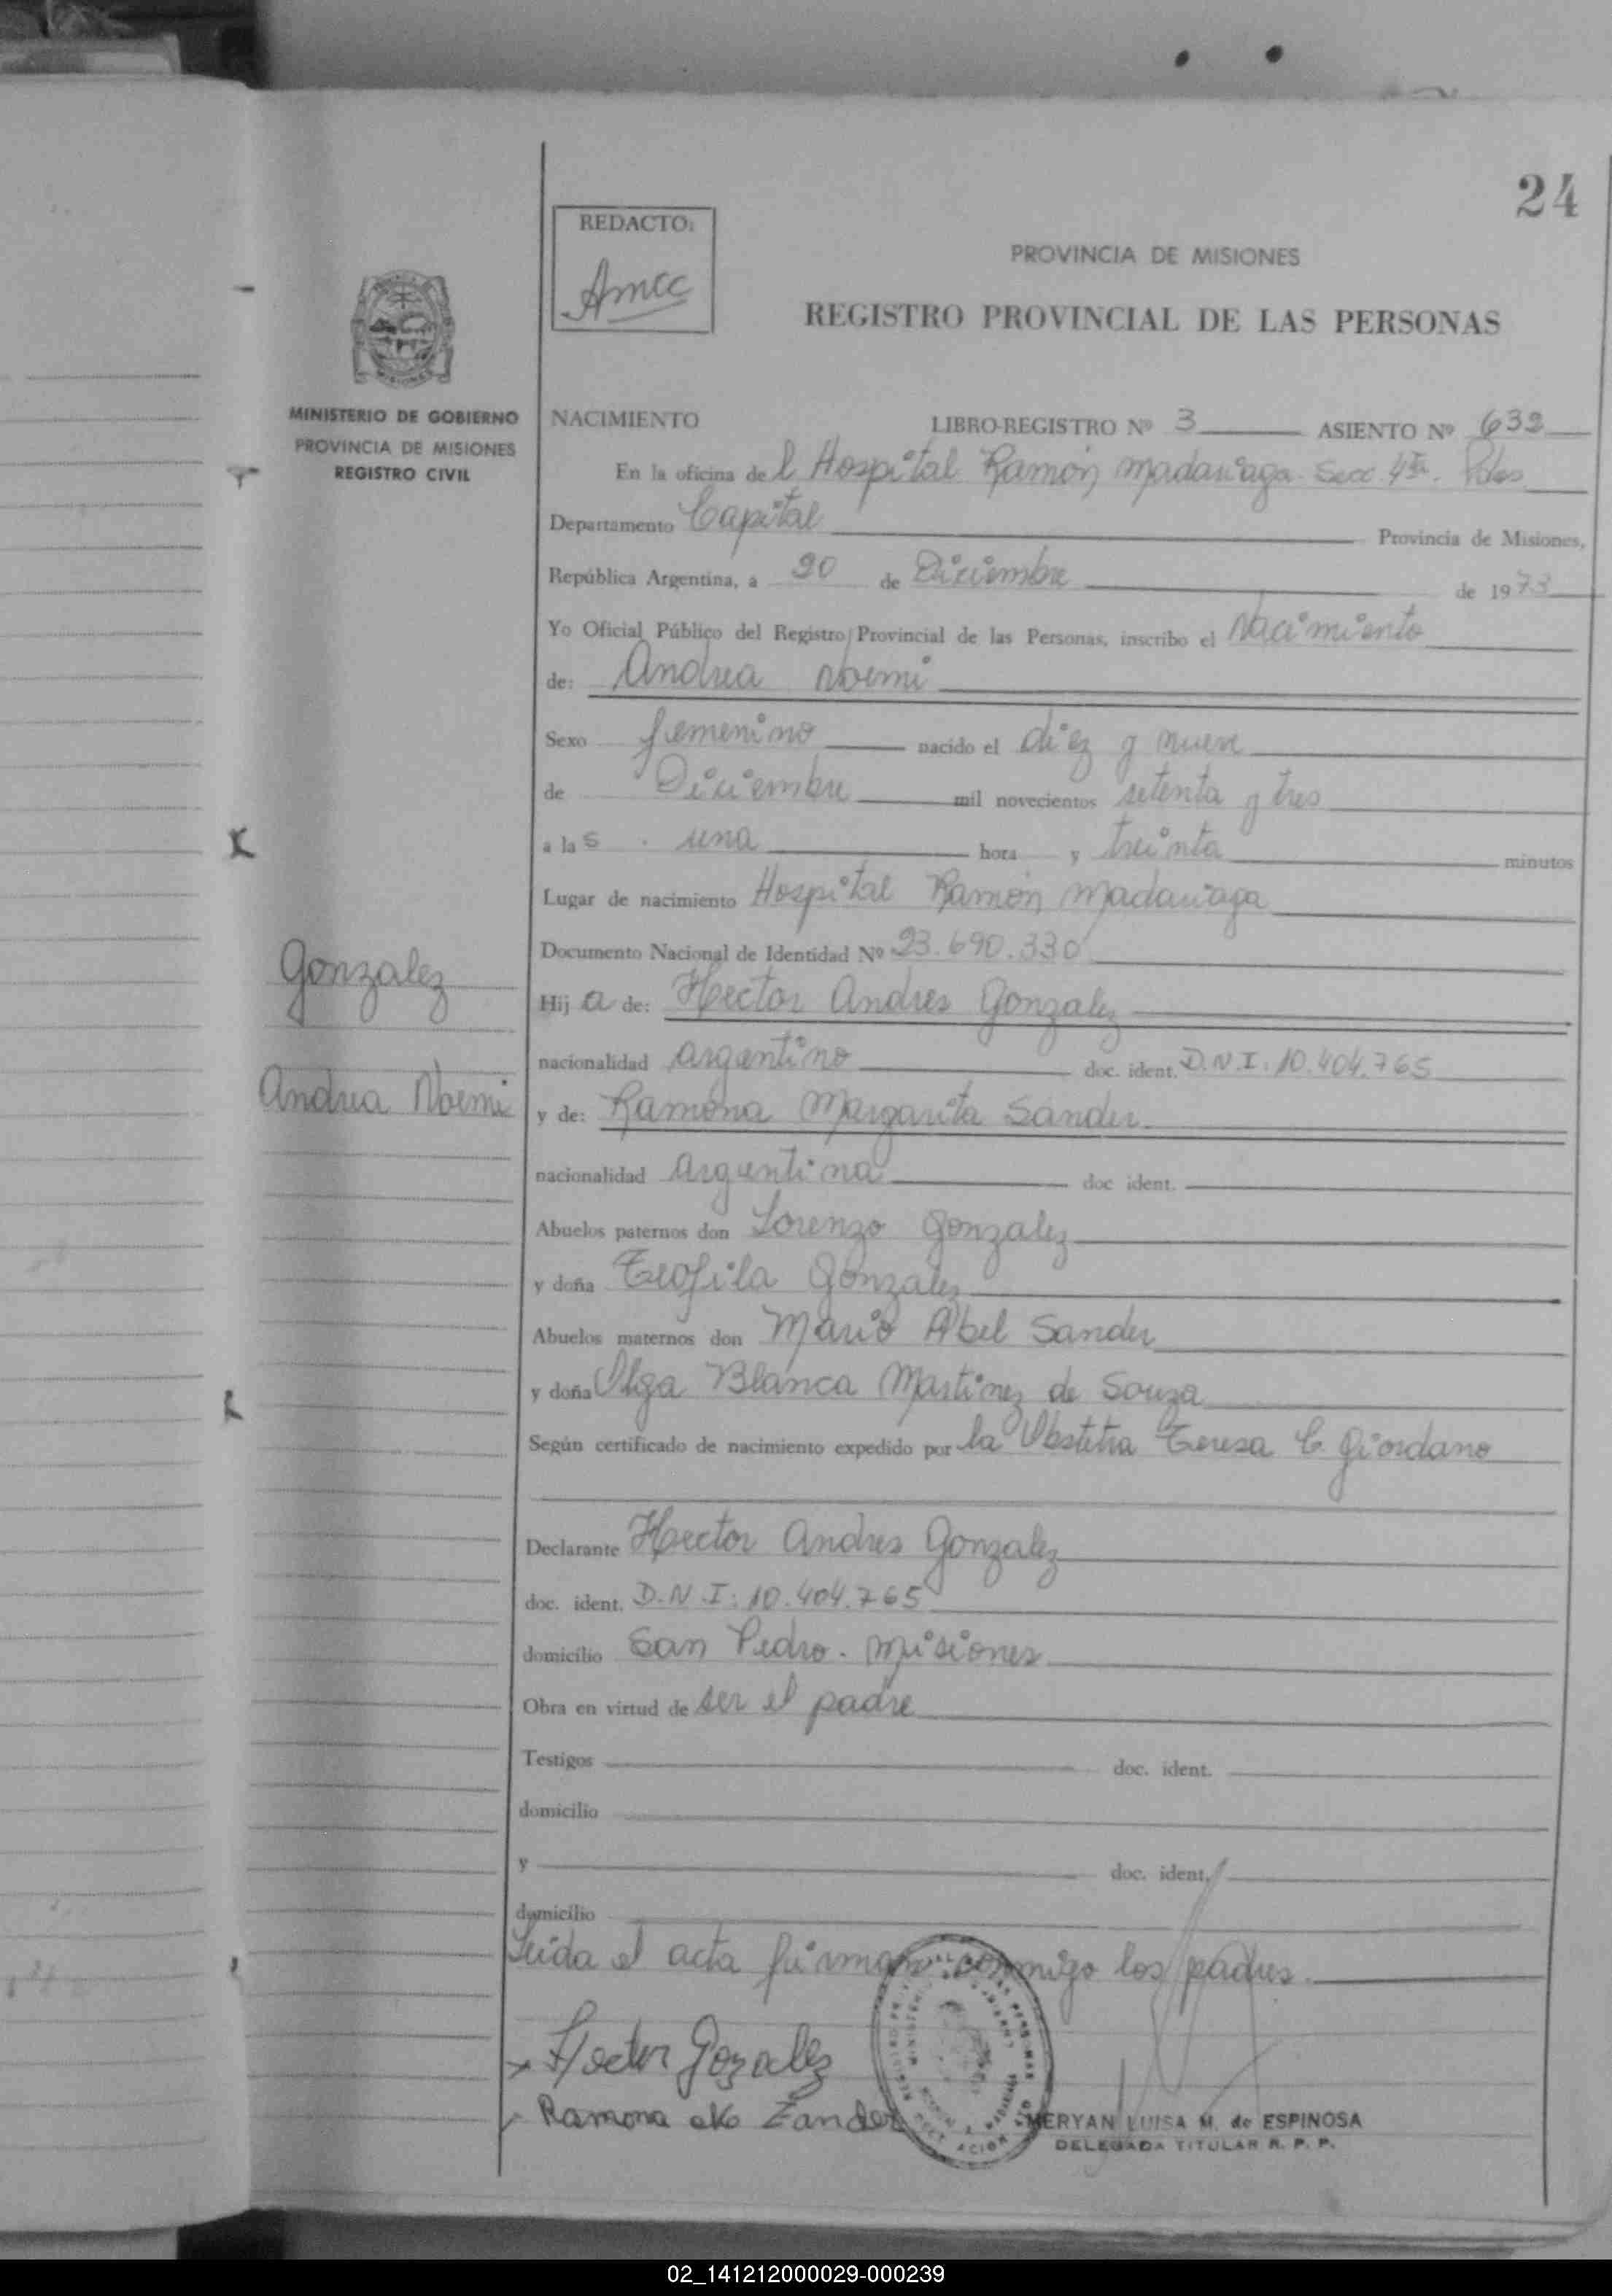 24
REDACTO:
Amcc
PROVINCIA DE MISIONES
REGISTRO PROVINCIAL DE LAS PERSONAS
MISIONES
MINISTERIO DE GOBIERNO
PROVINCIA DE MISIONES
REGISTRO CIVIL
NACIMIENTO LIBRO-REGISTRO Nº 3 ASIENTO Nº 632
En la oficina de l Hospital Ramón Madariaga. Secc. 4ta. Pdas
Departamento Capital Provincia de Misiones,
República Argentina, a 20 de Diciembre de 1973
Yo Oficial Público del Registro Provincial de las Personas, inscribo el Nacimiento
de: Andrea Noemi
Sexo femenino nacido el diez y nueve
de Diciembre mil novecientos setenta y tres
a la s una hora y treinta minutos
Lugar de nacimiento Hospital Ramón Madariaga
Documento Nacional de Identidad Nº 23.690.330
Gonzalez
Hij a de: Hector Andres Gonzalez
nacionalidad argentino doc. ident. D.N.I: 10.404.765
Andrea Noemi
y de: Ramona Margarita Sander
nacionalidad argentina doc ident.
Abuelos paternos don Lorenzo Gonzalez
y doña Teofila Gonzalez
Abuelos maternos don Mario Abel Sander
y doña Olga Blanca Martinez de Souza
Según certificado de nacimiento expedido por la Obstetra Teresa C. Giordano
Declarante Hector Andres Gonzalez
doc. ident. D.N.I: 10.404.765
domicilio San Pedro. Misiones
Obra en virtud de ser el padre
Testigos doc. ident.
domicilio
y doc. ident.
domicilio
Leida el acta firman conmigo los padres.
Hector Gozalez
Ramona Zander
MERYAN LUISA M. de ESPINOSA
DELEGADA TITULAR R. P. P.
02_141212000029-000239